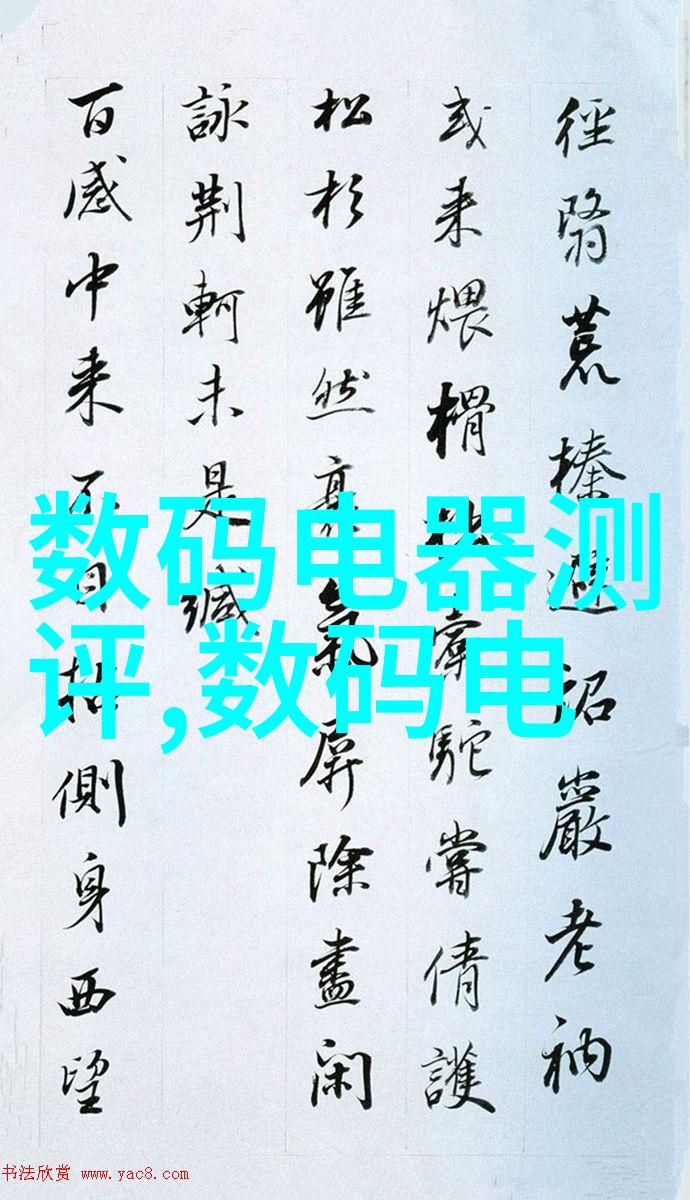 徑翳荒榛詔巖老衲
或来煨榾駝嘗倩護
松杉雖然真氣屏除盡閑
詠荆軻未是減
百感中来不自側身西望
数码电器测
评,数码电
书法欣赏 www.yac8.com